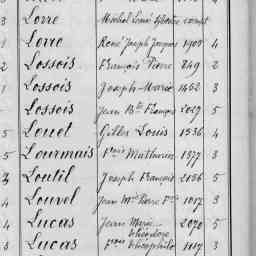 3 Lorre Michel Louis compt
1 Lorre René Joseph Jacques 1908 4
2 Lossois François Pierre 249 2
1 Lossois Joseph Marie 1452 3
Lossois Jean Bte François 5
5 Louel Gilles Louis 1536 4
5 Lourmais Fçois Mathurin 1377 3
3 Loutil Joseph François 2156 5
4 Louvel Jean M. Pierre Fs 1017 3
4 Lucas Jean Marie 2070 5
3 Lucas Théodore
Fçois Théophile 1117 3